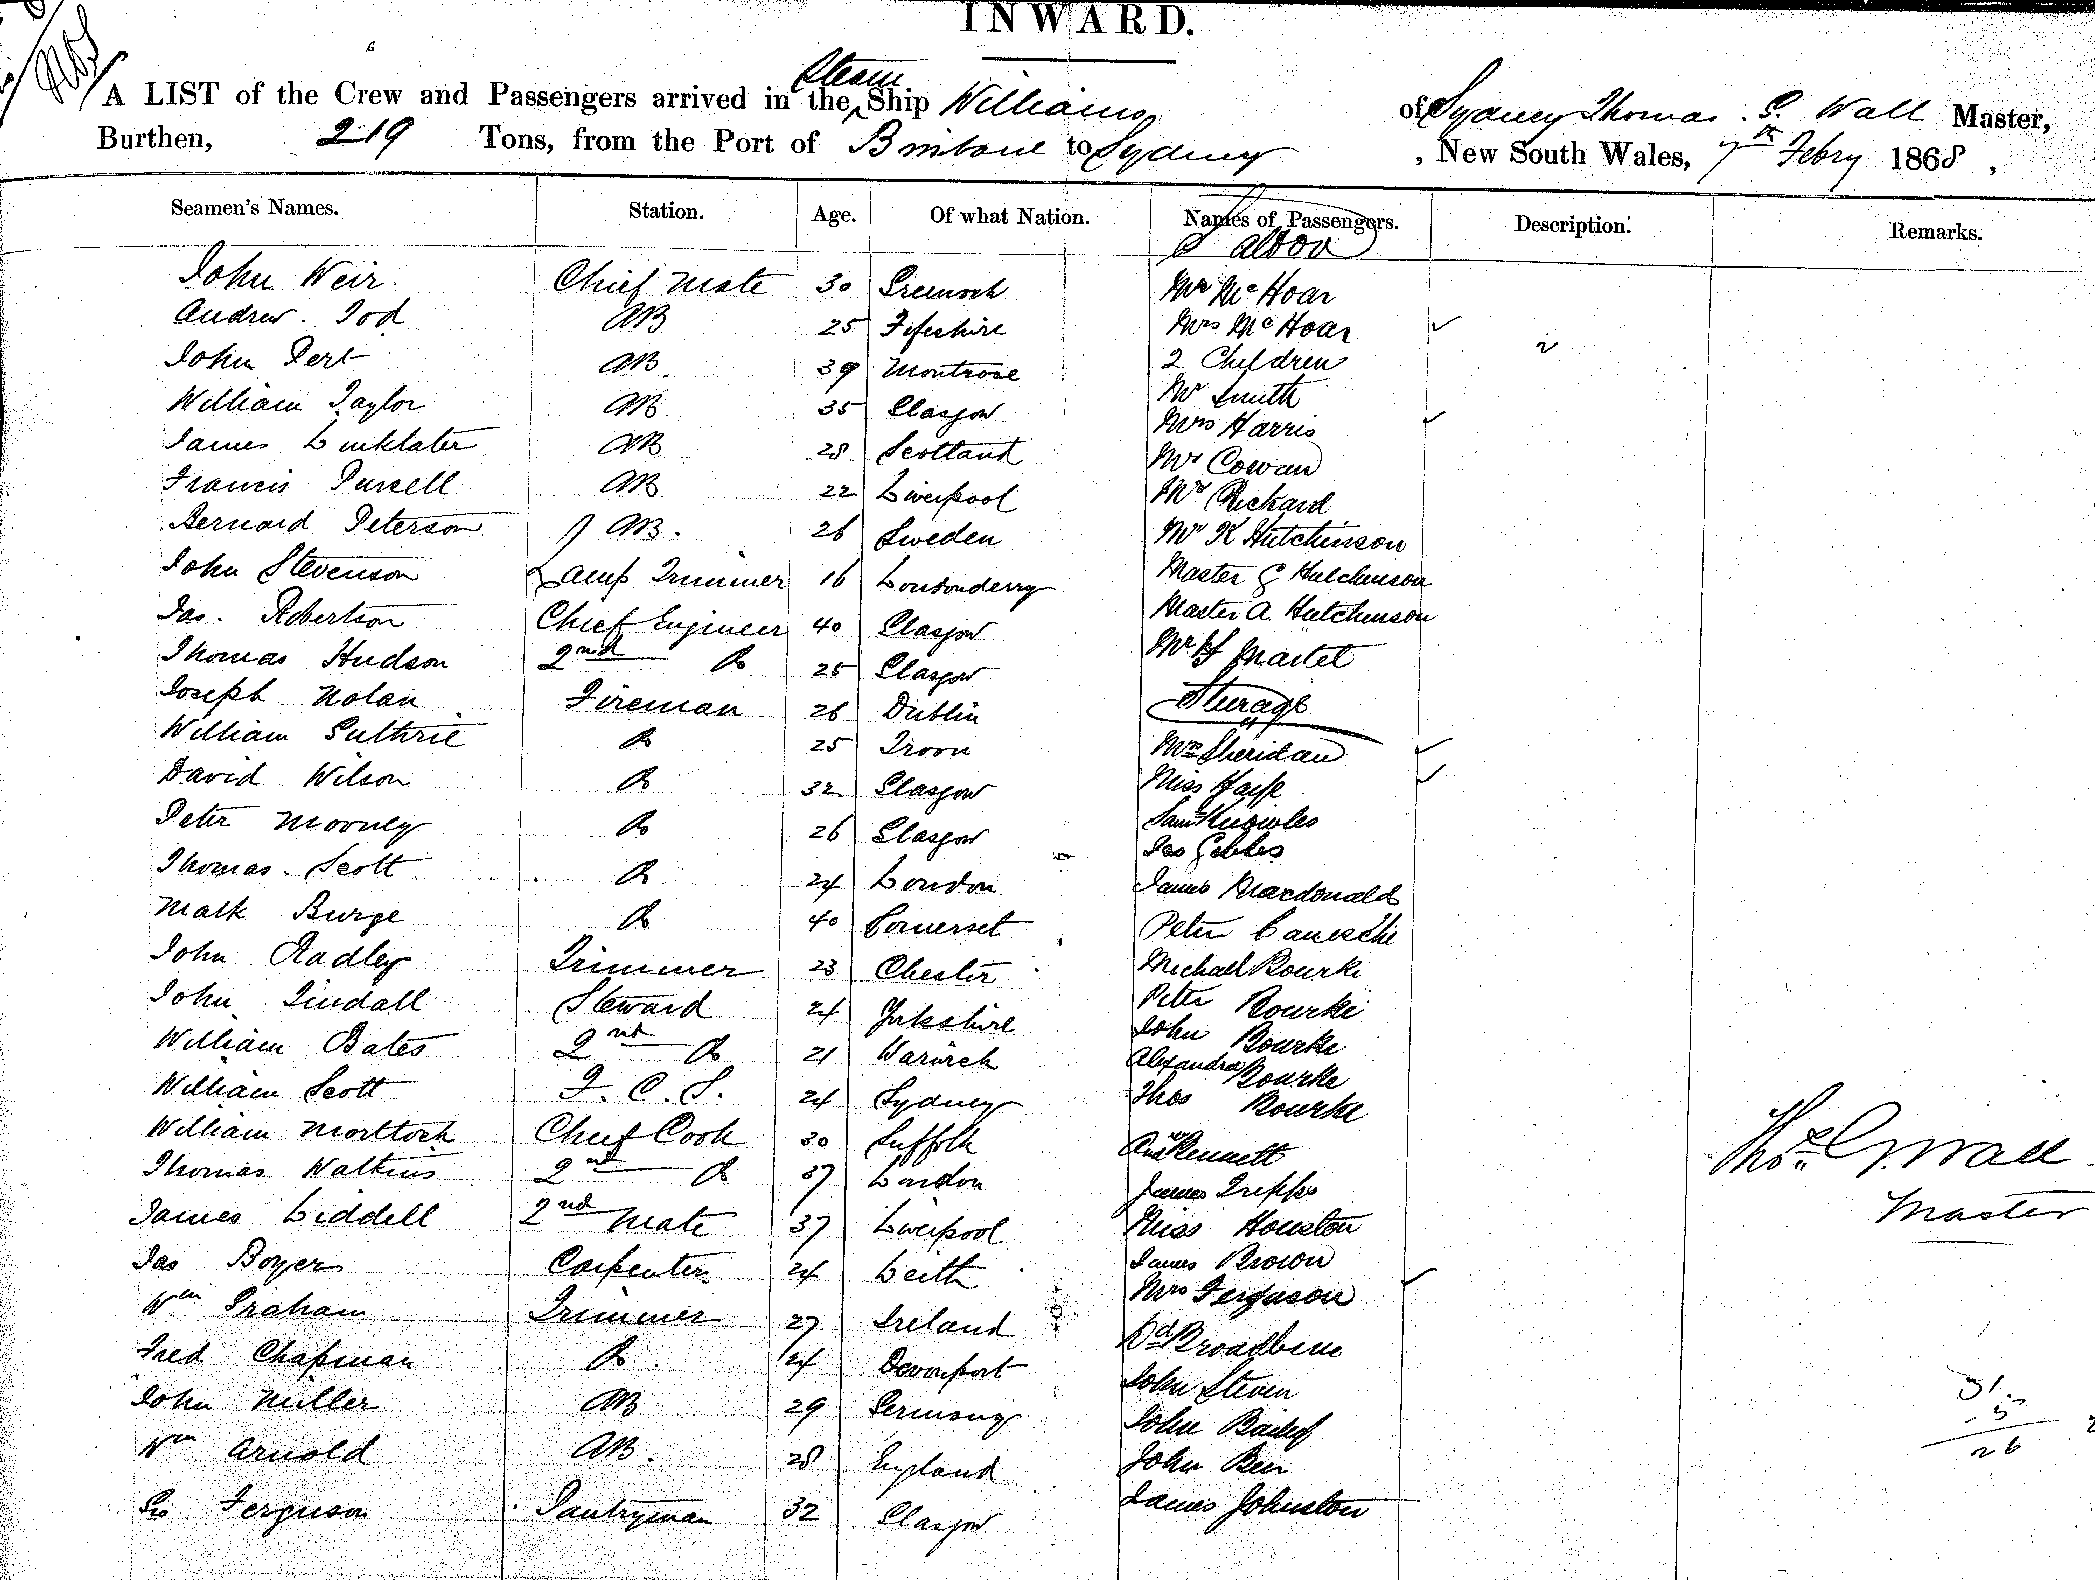 INWARD.
A LIST of the Crew and Passengers arrived in the Steam Ship Williams of Sydney Thomas G. Wall Master,
Burthen, 219 Tons, from the Port of Brisbane to Sydney, New South Wales, 7th Febry 1868,
Seamen's Names. Station. Age. Of what Nation. Names of Passengers. Description. Remarks.
Saloon
John Weir Chief Mate 30 Greenock Mr McHoar
Andrew Tod AB 25 Fifeshire Mrs McHoar
John Pert AB 39 Montrose 2 Children
William Taylor AB 35 Glasgow Mr Smith
James Linklater AB 28 Scotland Mrs Harris
Francis Pursell AB 22 Liverpool Mr Cowan
Bernard Peterson AB. 26 Sweden Mr Rickard
John Stevenson Lamp Trimmer 16 Londonderry Mr K Hutchinson
Jas. Robertson Chief Engineer 40 Glasgow Master G Hutchinson
Thomas Hudson 2nd Do 25 Glasgow Master A. Hutchinson
Joseph Nolan Fireman 26 Dublin Mr Martel
William Guthrie Do 25 Troon Sturage
David Wilson Do 32 Glasgow Mrs Sheridan
Peter Mooney Do 26 Glasgow Miss Harp
Thomas Scott Do 24 London Saml Knowles
Mark Burge Do 40 Somerset Jas
John Radley Trimmer 23 Chester James Macdonald
John Tindall Steward 24 Yorkshire Peter
William Bates 2nd Do 21 Warwick Michael Bourke
William Scott F. C. S. 24 Sydney Peter Bourke
William Mortlock Chief Cook 30 Suffolk John Bourke
Thomas Watkins 2nd Do 37 London Alexandra Bourke
James Liddell 2nd Mate 37 Liverpool Thos Bourke
Jas Boyer Carpenter 24 Leith Kennett
Wm Graham Trimmer 27 Ireland James Tripps
Fred Chapman Do 24 Devonport Miss Houston
John Miller AB 29 Germany James Brown
Wm Arnold AB. 28 England Mrs Ferguson
Geo Ferguson Pantryman 32 Glasgow
John Steven
John
John
James Johnston
Thos G. Wall
Master
31
5
26